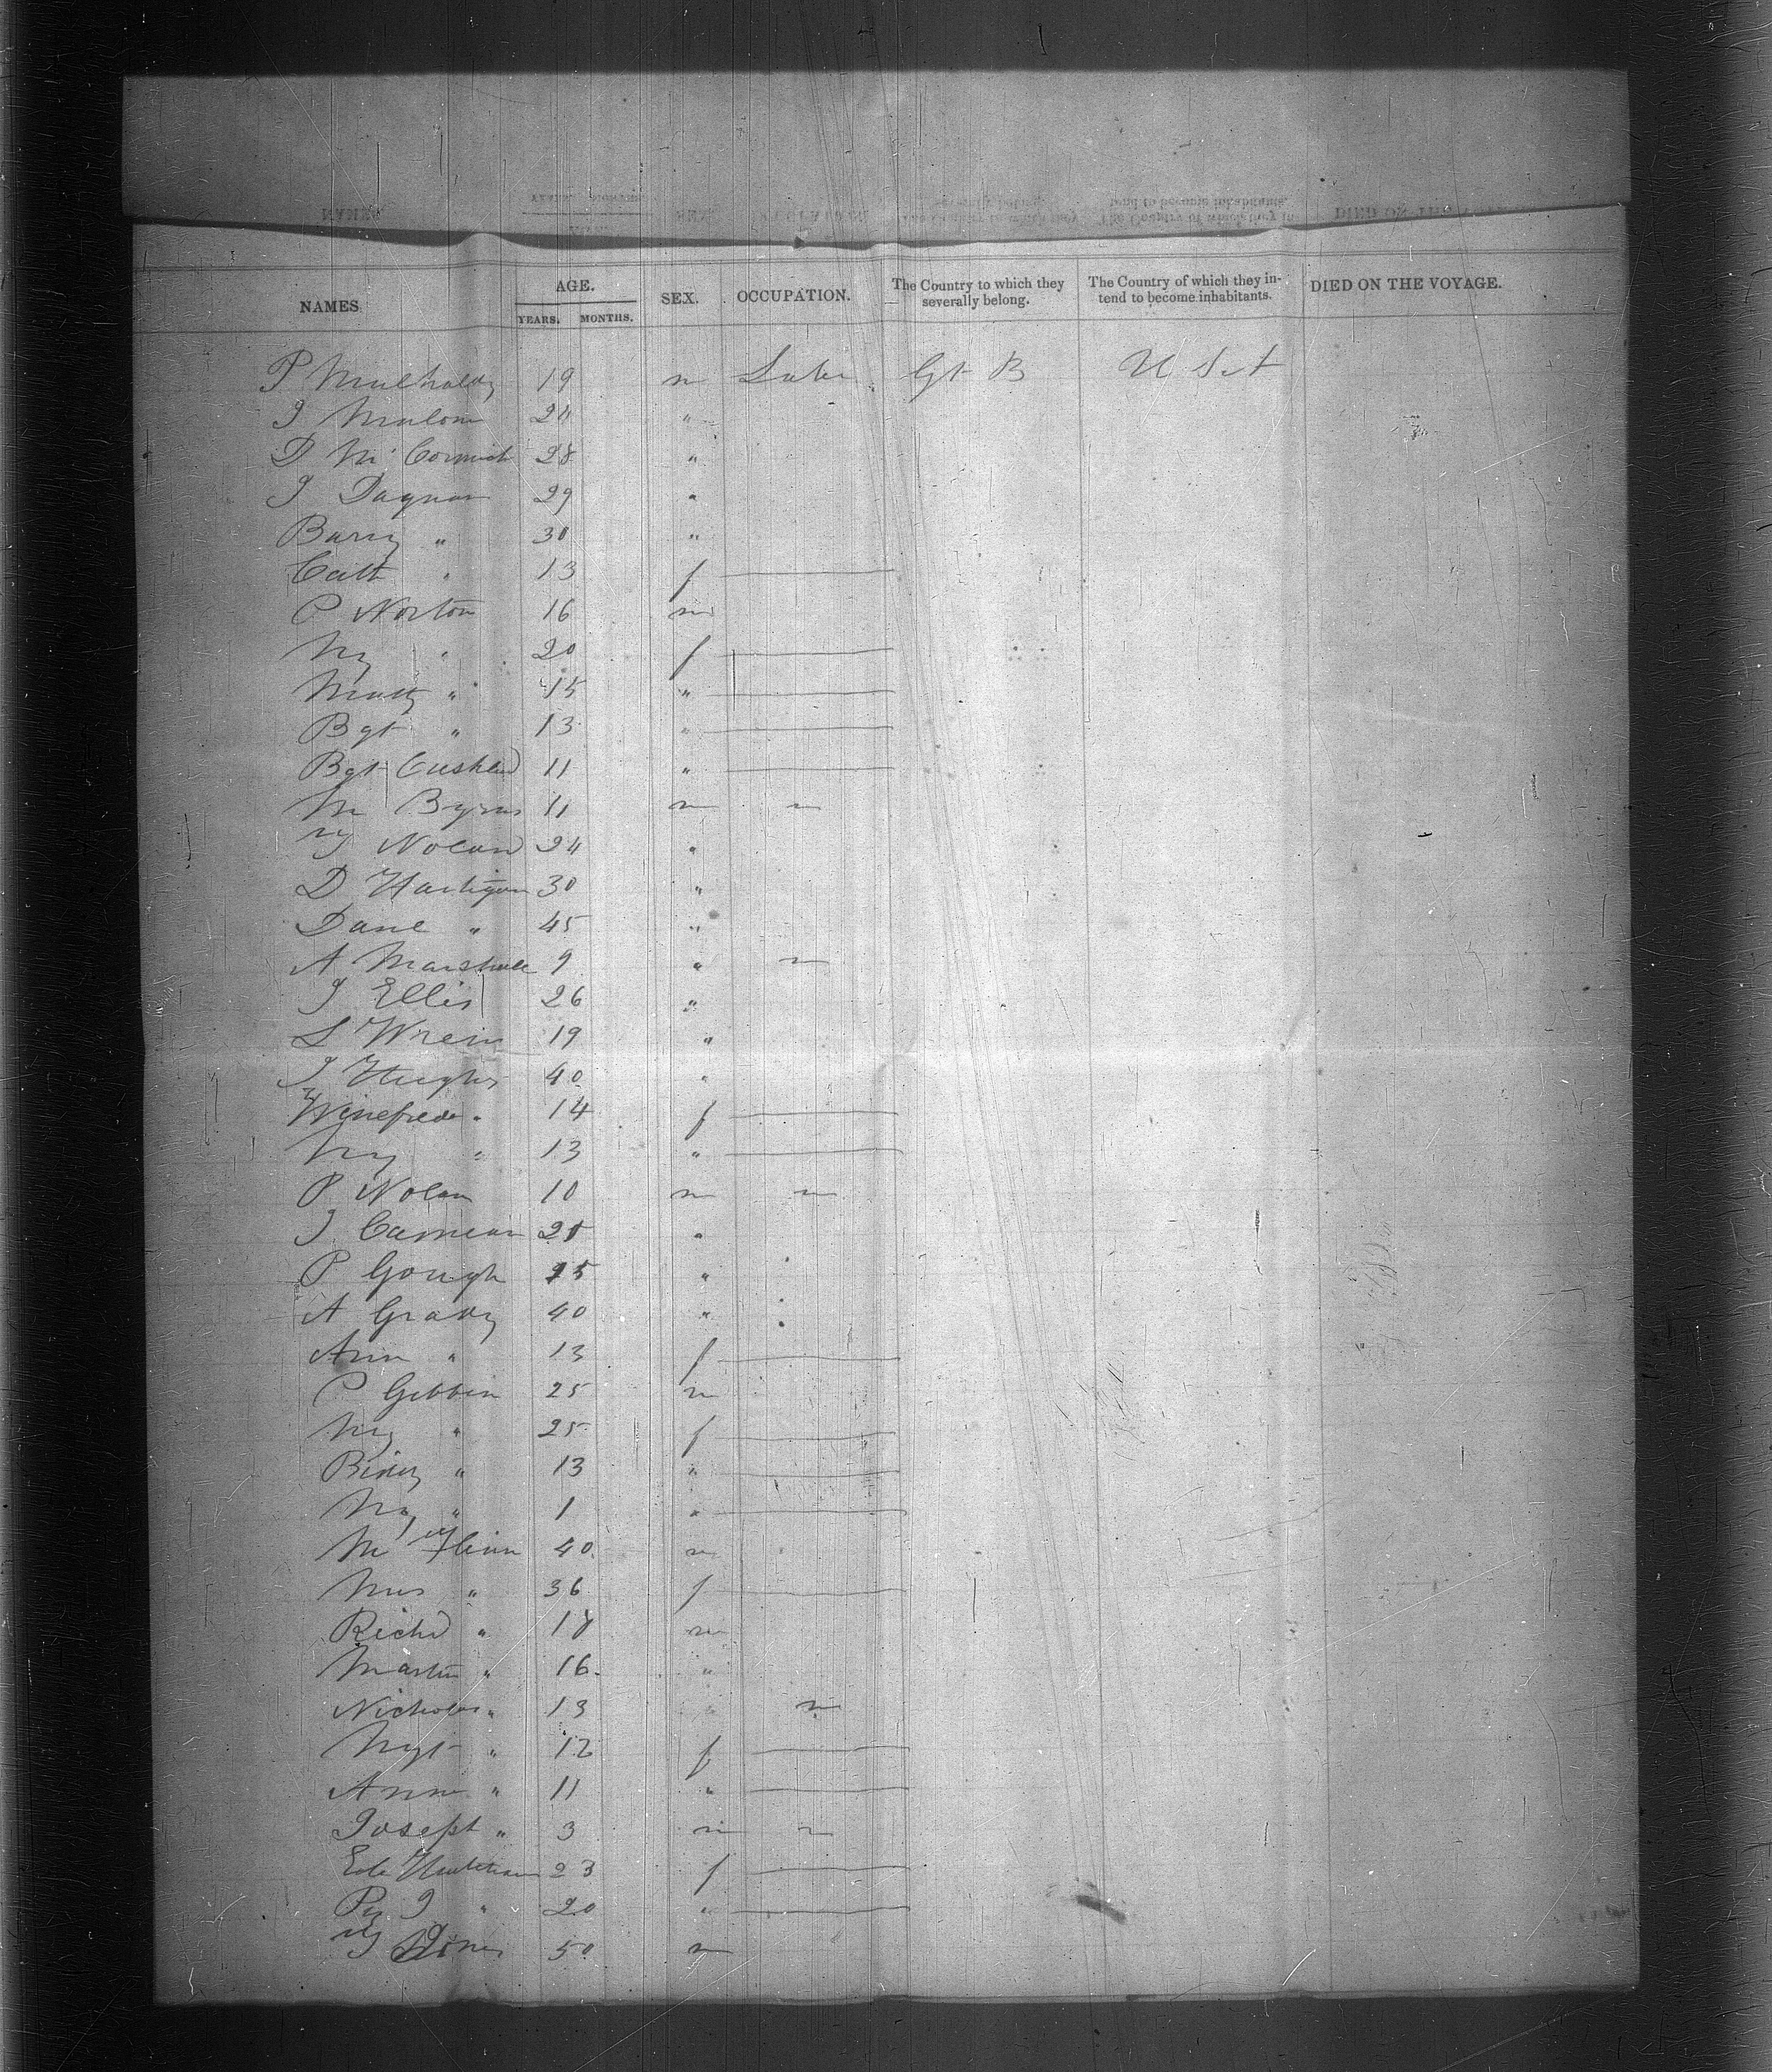 NAMES AGE. YEARS. MONTHS. SEX. OCCUPATION. The Country to which they severally belong. The Country of which they intend to become inhabitants. DIED ON THE VOYAGE.
P 19 m Gt B U S A
J Malone 24 "
D McCormick 28 "
J Dagnan 29 "
Barny " 30 "
Cath " 13 f
P Norton 16 m
My " 20 f
" 15 "
Bgt " 13 "
Bgt 11 "
M Byrns 11 m
Nolan 24 "
D Hartigan 30 "
Dane " 45 "
A Marshall 9 "
J Ellis 26 "
L Wrein 19 "
J Hughes 40 "
Winefrede " 14 f
My " 13 "
P Nolan 10 m
J "
P Gough "
A Grady 40 "
Ann " 13 f
P Gibbin 25 m
My " 25 f
" 13 "
My " 1 "
M Flinn 40 m
Mrs " 36 f
Richd " m
Martin " 16 "
Nicholas " 13 "
Mgt " 12 f
Anne " 11 "
Joseph " 3 m
23 f
J " 20 "
50 m